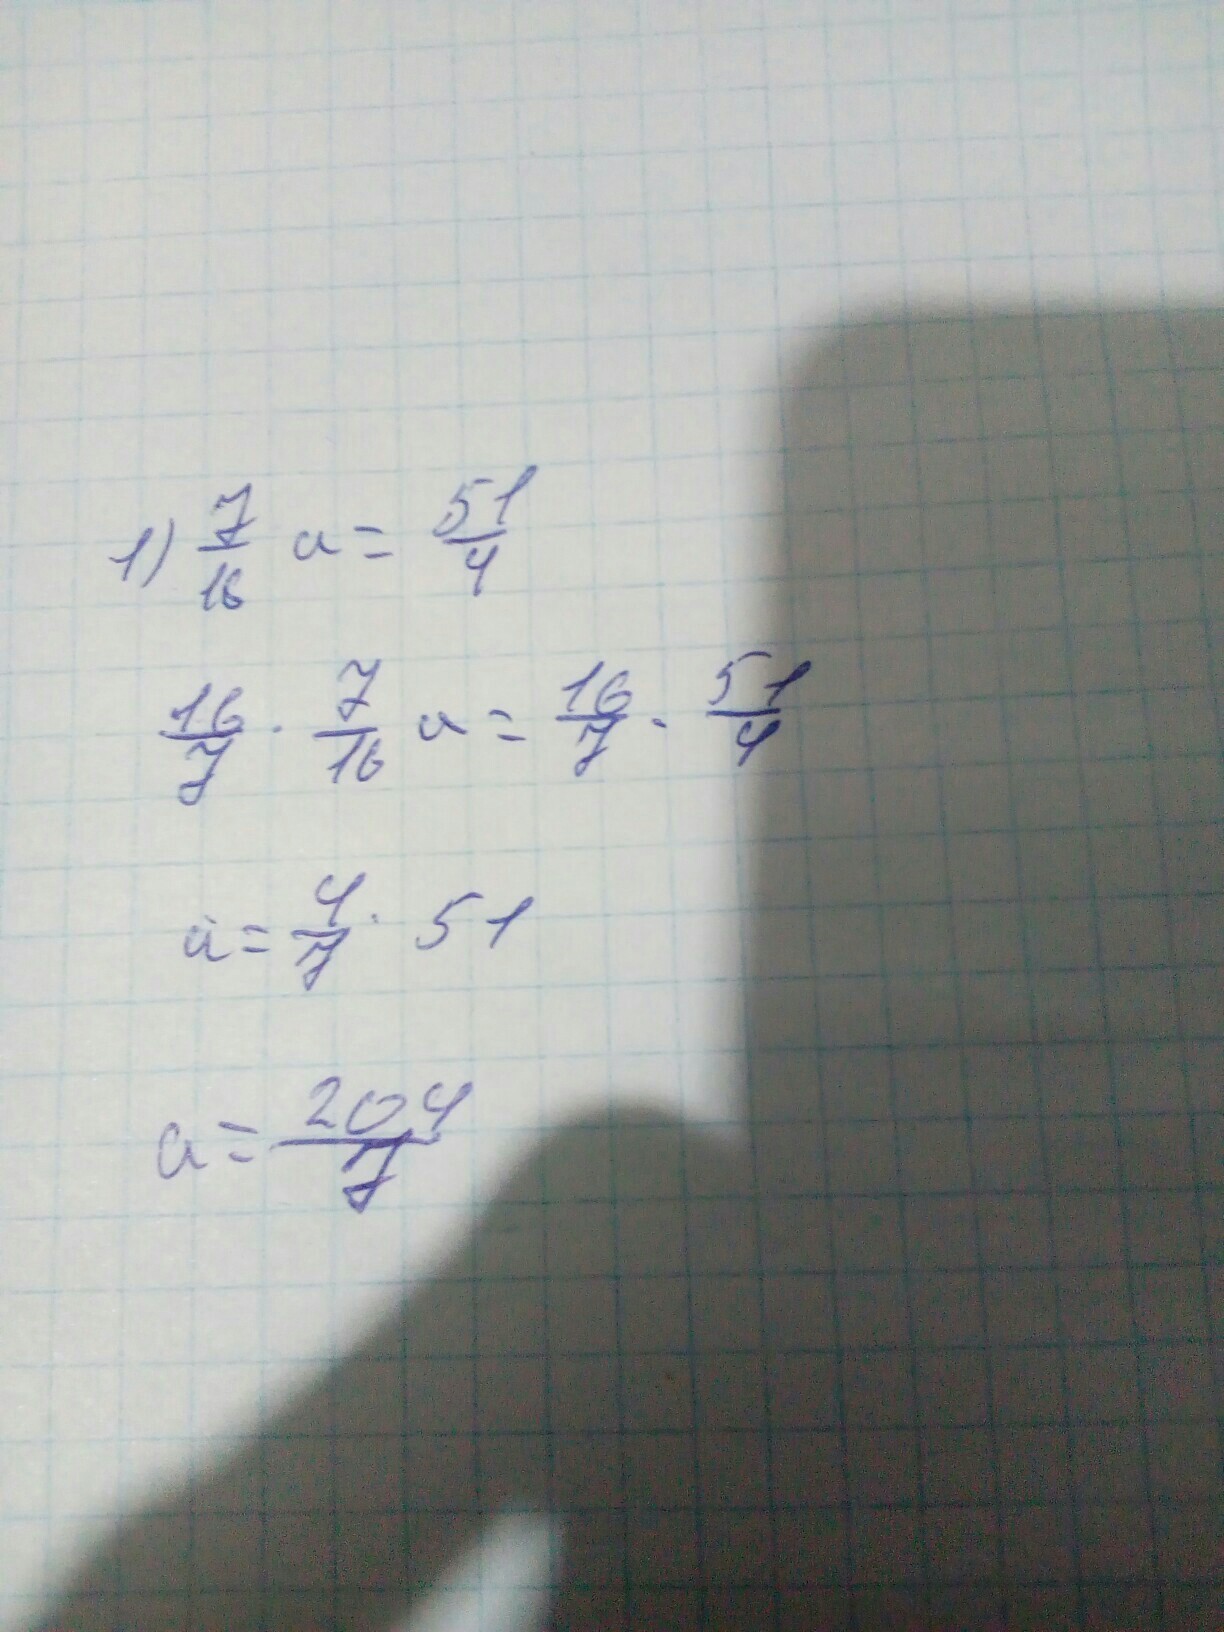 1) 7/16 a = 51/4
16/7 · 7/16 a = 16/7 · 51/4
a = 4/7 · 51
a = 204/7